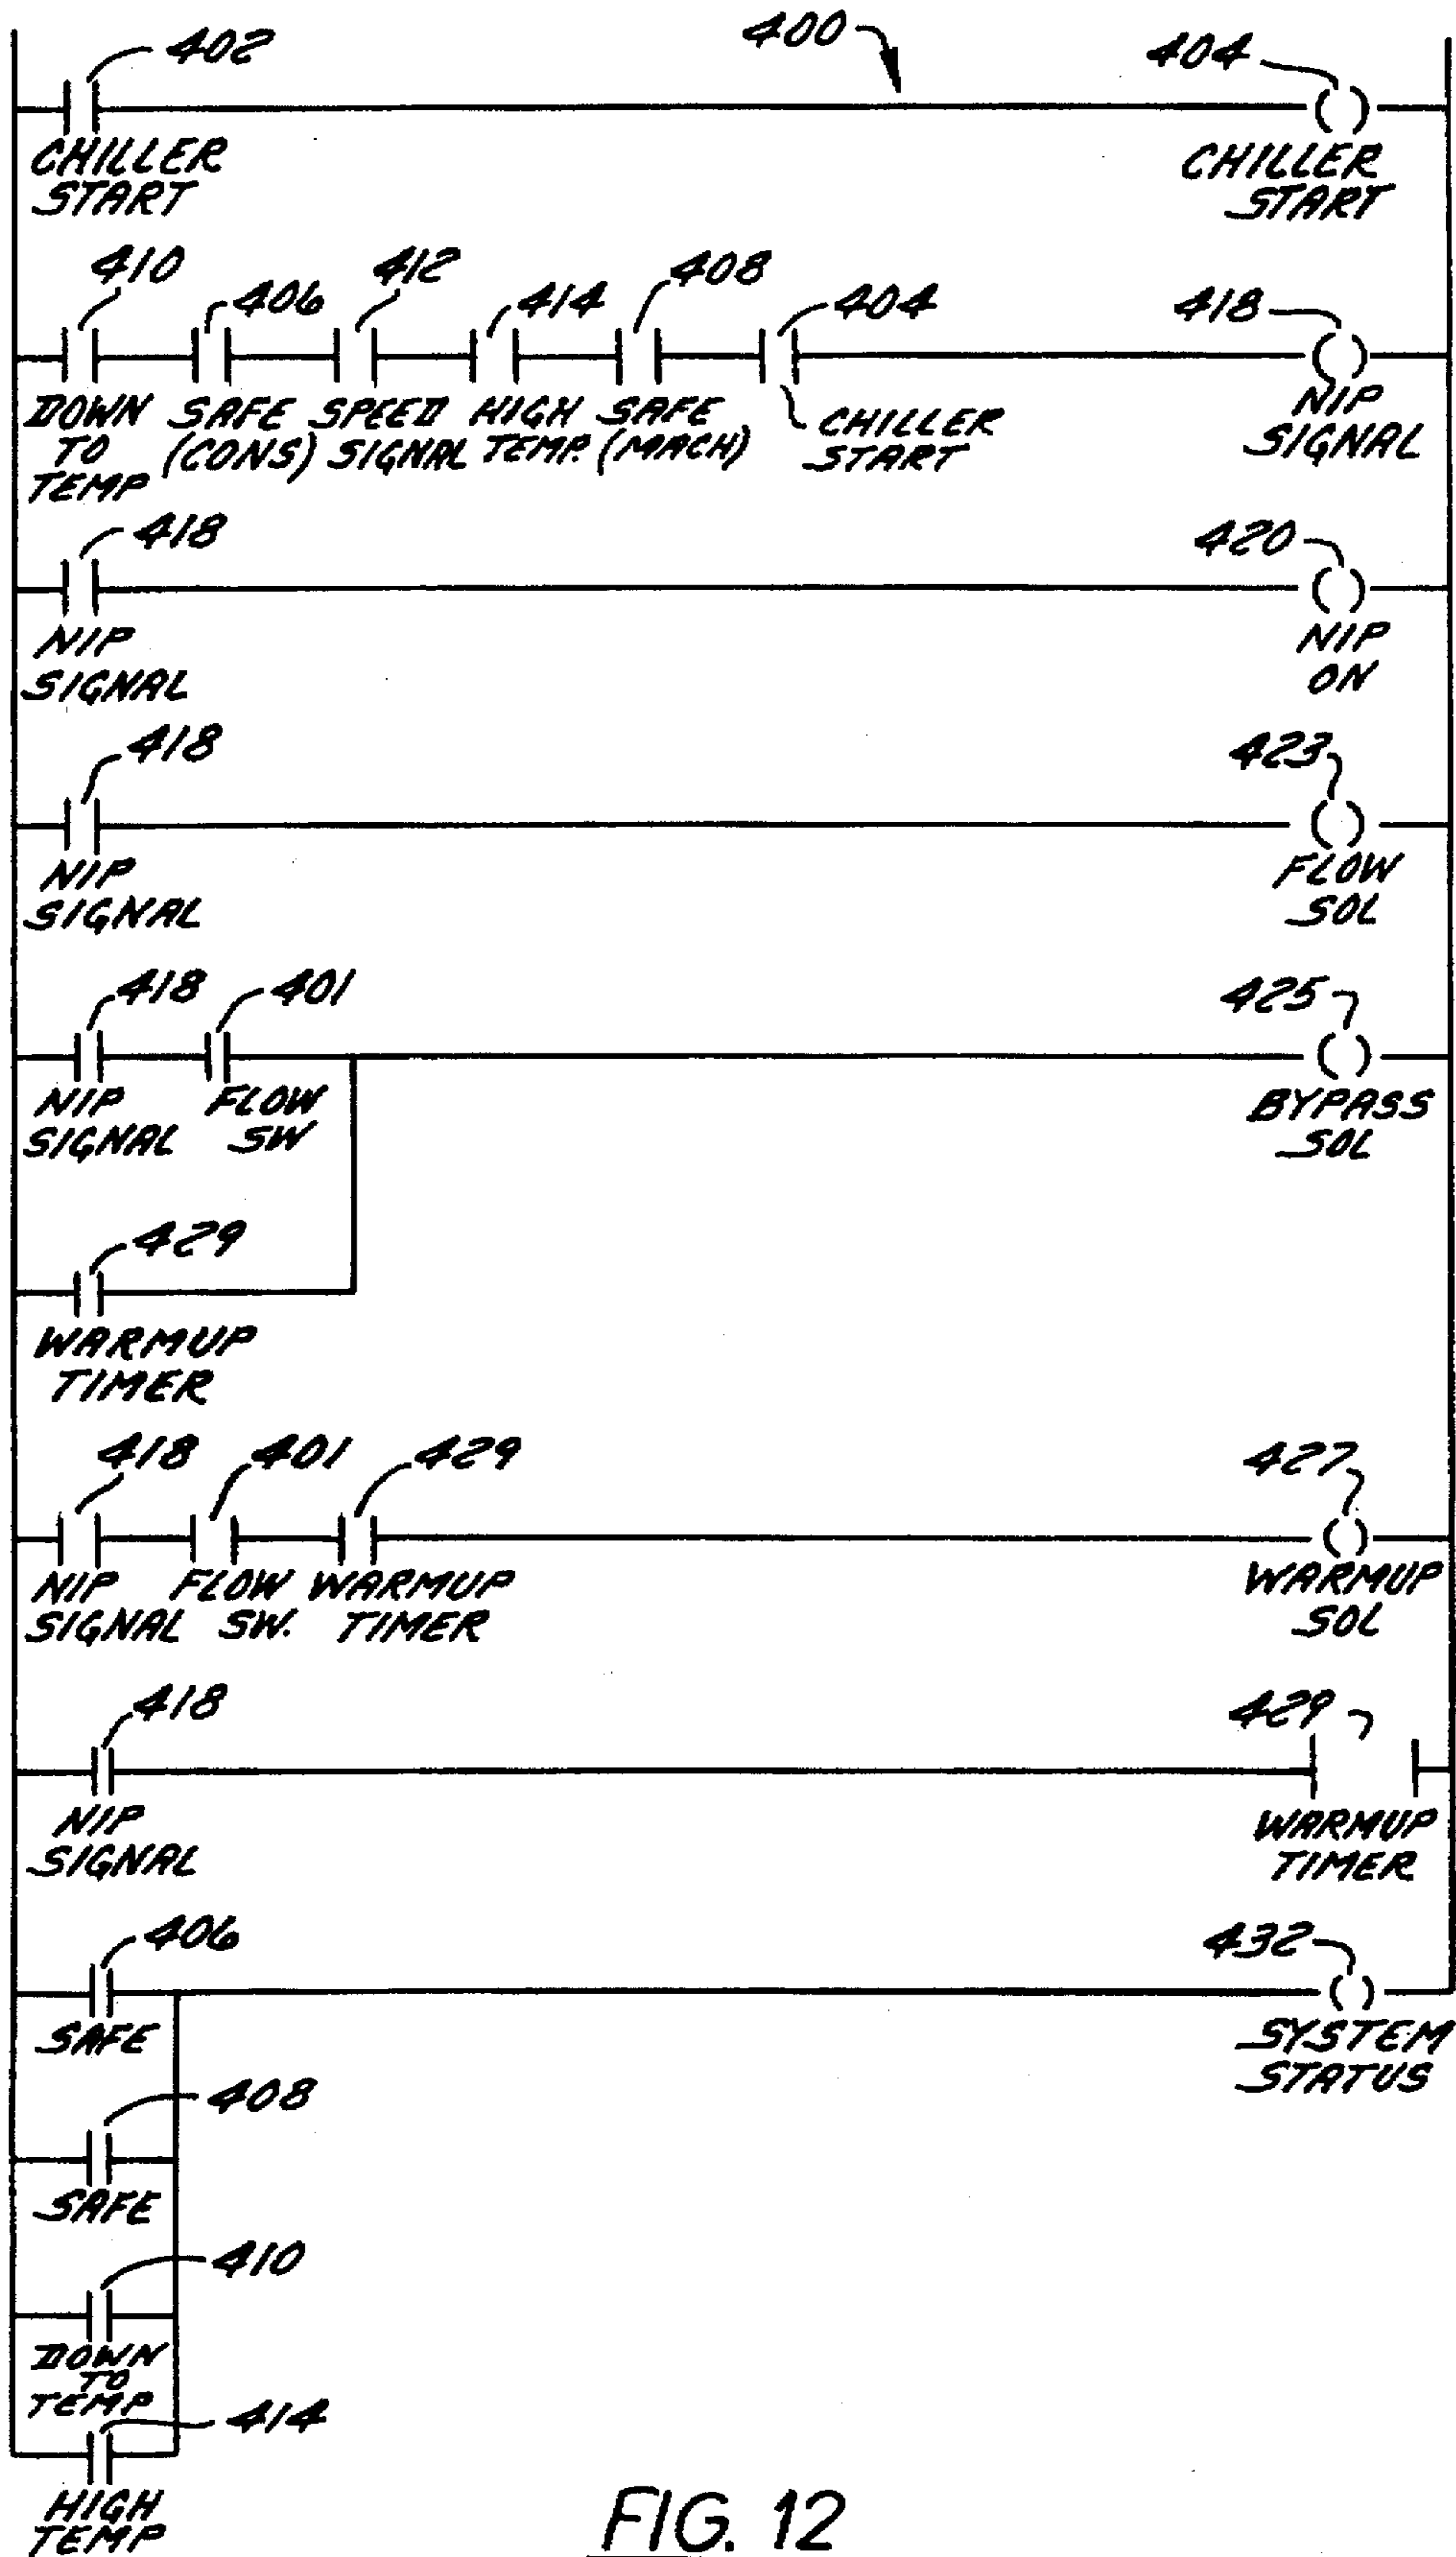 402
400
404
CHILLER
START
CHILLER
START
410
406
412
414
408
404
418
DOWN
TO
TEMP
SAFE
(CONS)
SPEED
SIGNAL
HIGH
TEMP.
SAFE
(MACH)
CHILLER
START
NIP
SIGNAL
418
420
NIP
SIGNAL
NIP
ON
418
423
NIP
SIGNAL
FLOW
SOL
418
401
425
NIP
SIGNAL
FLOW
SW
BYPASS
SOL
429
WARMUP
TIMER
418
401
429
427
NIP
SIGNAL
FLOW
SW.
WARMUP
TIMER
WARMUP
SOL
418
429
NIP
SIGNAL
WARMUP
TIMER
406
432
SAFE
SYSTEM
STATUS
408
SAFE
410
DOWN
TO
TEMP
414
HIGH
TEMP
FIG. 12